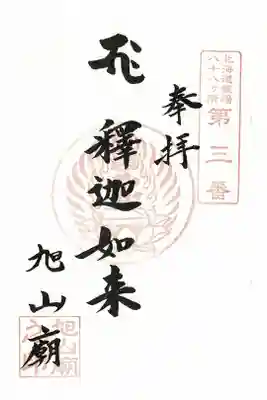 北海道霊場
八十八ヶ所
第三番
奉拝
釋迦如来
旭山廟